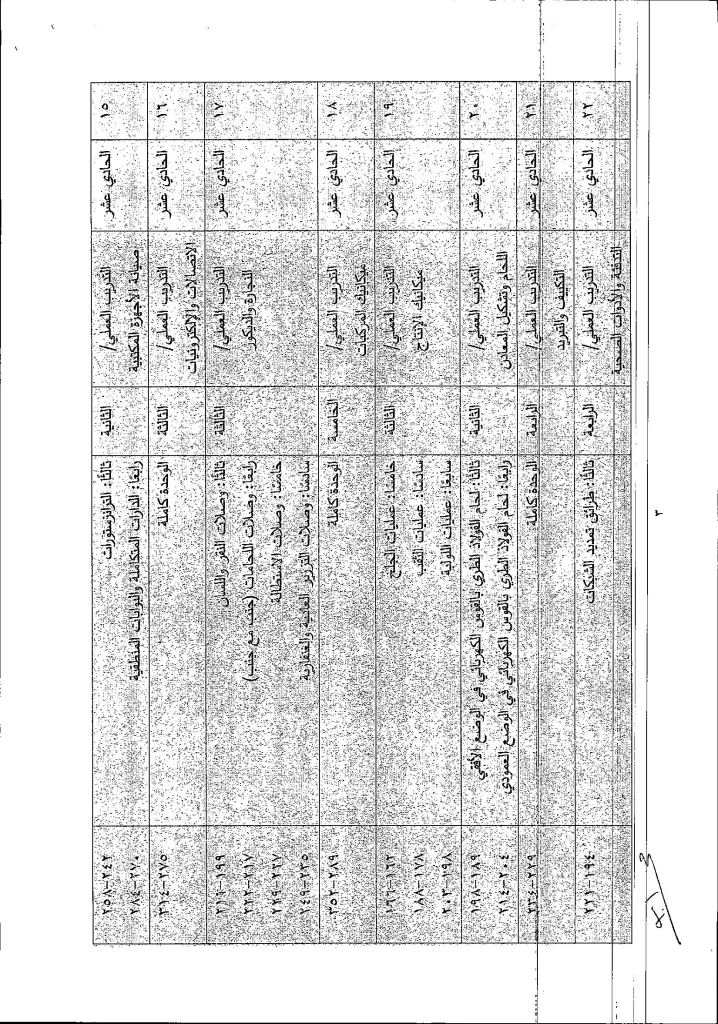 ١٥ الحادي عشر التدريب العملي/ الثانية ثالثًا: الترانزستورات ٢٤٢-٢٥٨
صيانة الأجهزة المكتبية رابعًا: الدارات المتكاملة والبوابات المنطقية ٢٧٠-٢٨٤
١٦ الحادي عشر التدريب العملي/ الثالثة الوحدة كاملة ٢٧٥-٣١٤
الاتصالات والإلكترونيات
١٧ الحادي عشر التدريب العملي/ الثالثة ثالثًا: وصلات النقر واللسان ١٩٩-٢١٦
النجارة والديكور رابعًا: وصلات اللحامات (جنب مع جنب) ٢١٧-٢٢٢
خامسًا: وصلات الاستطالة ٢٢٧-٢٢٩
سادسًا: وصلات التزرير العادية والغنفارية ٢٣٥-٢٤٩
١٨ الحادي عشر التدريب العملي/ الخامسة الوحدة كاملة ٢٨٩-٣٥٢
ميكانيك المركبات
١٩ الحادي عشر التدريب العملي/ الثالثة خامسًا: عمليات الجلخ ١٦٢-١٦٦
ميكانيك الإنتاج سادسًا: عمليات الثقب ١٧٨-١٨٨
سابعًا: عمليات اللولبة ١٩٨-٢٠٣
٢٠ الحادي عشر التدريب العملي/ الثانية ثالثًا: لحام الفولاذ الطري بالقوس الكهربائي في الوضع الأفقي ١٨٩-١٩٨
اللحام وتشكيل المعادن رابعًا: لحام الفولاذ الطري بالقوس الكهربائي في الوضع العمودي ٢٠٤-٢١٤
٢١ الحادي عشر التدريب العملي/ الرابعة الوحدة كاملة
التكييف والتبريد
٢٢ الحادي عشر التدريب العملي/ الرابعة ثالثًا: طرائق تمديد الشبكات ١٩٤-٢٢١
التدفئة والأدوات الصحية
٣